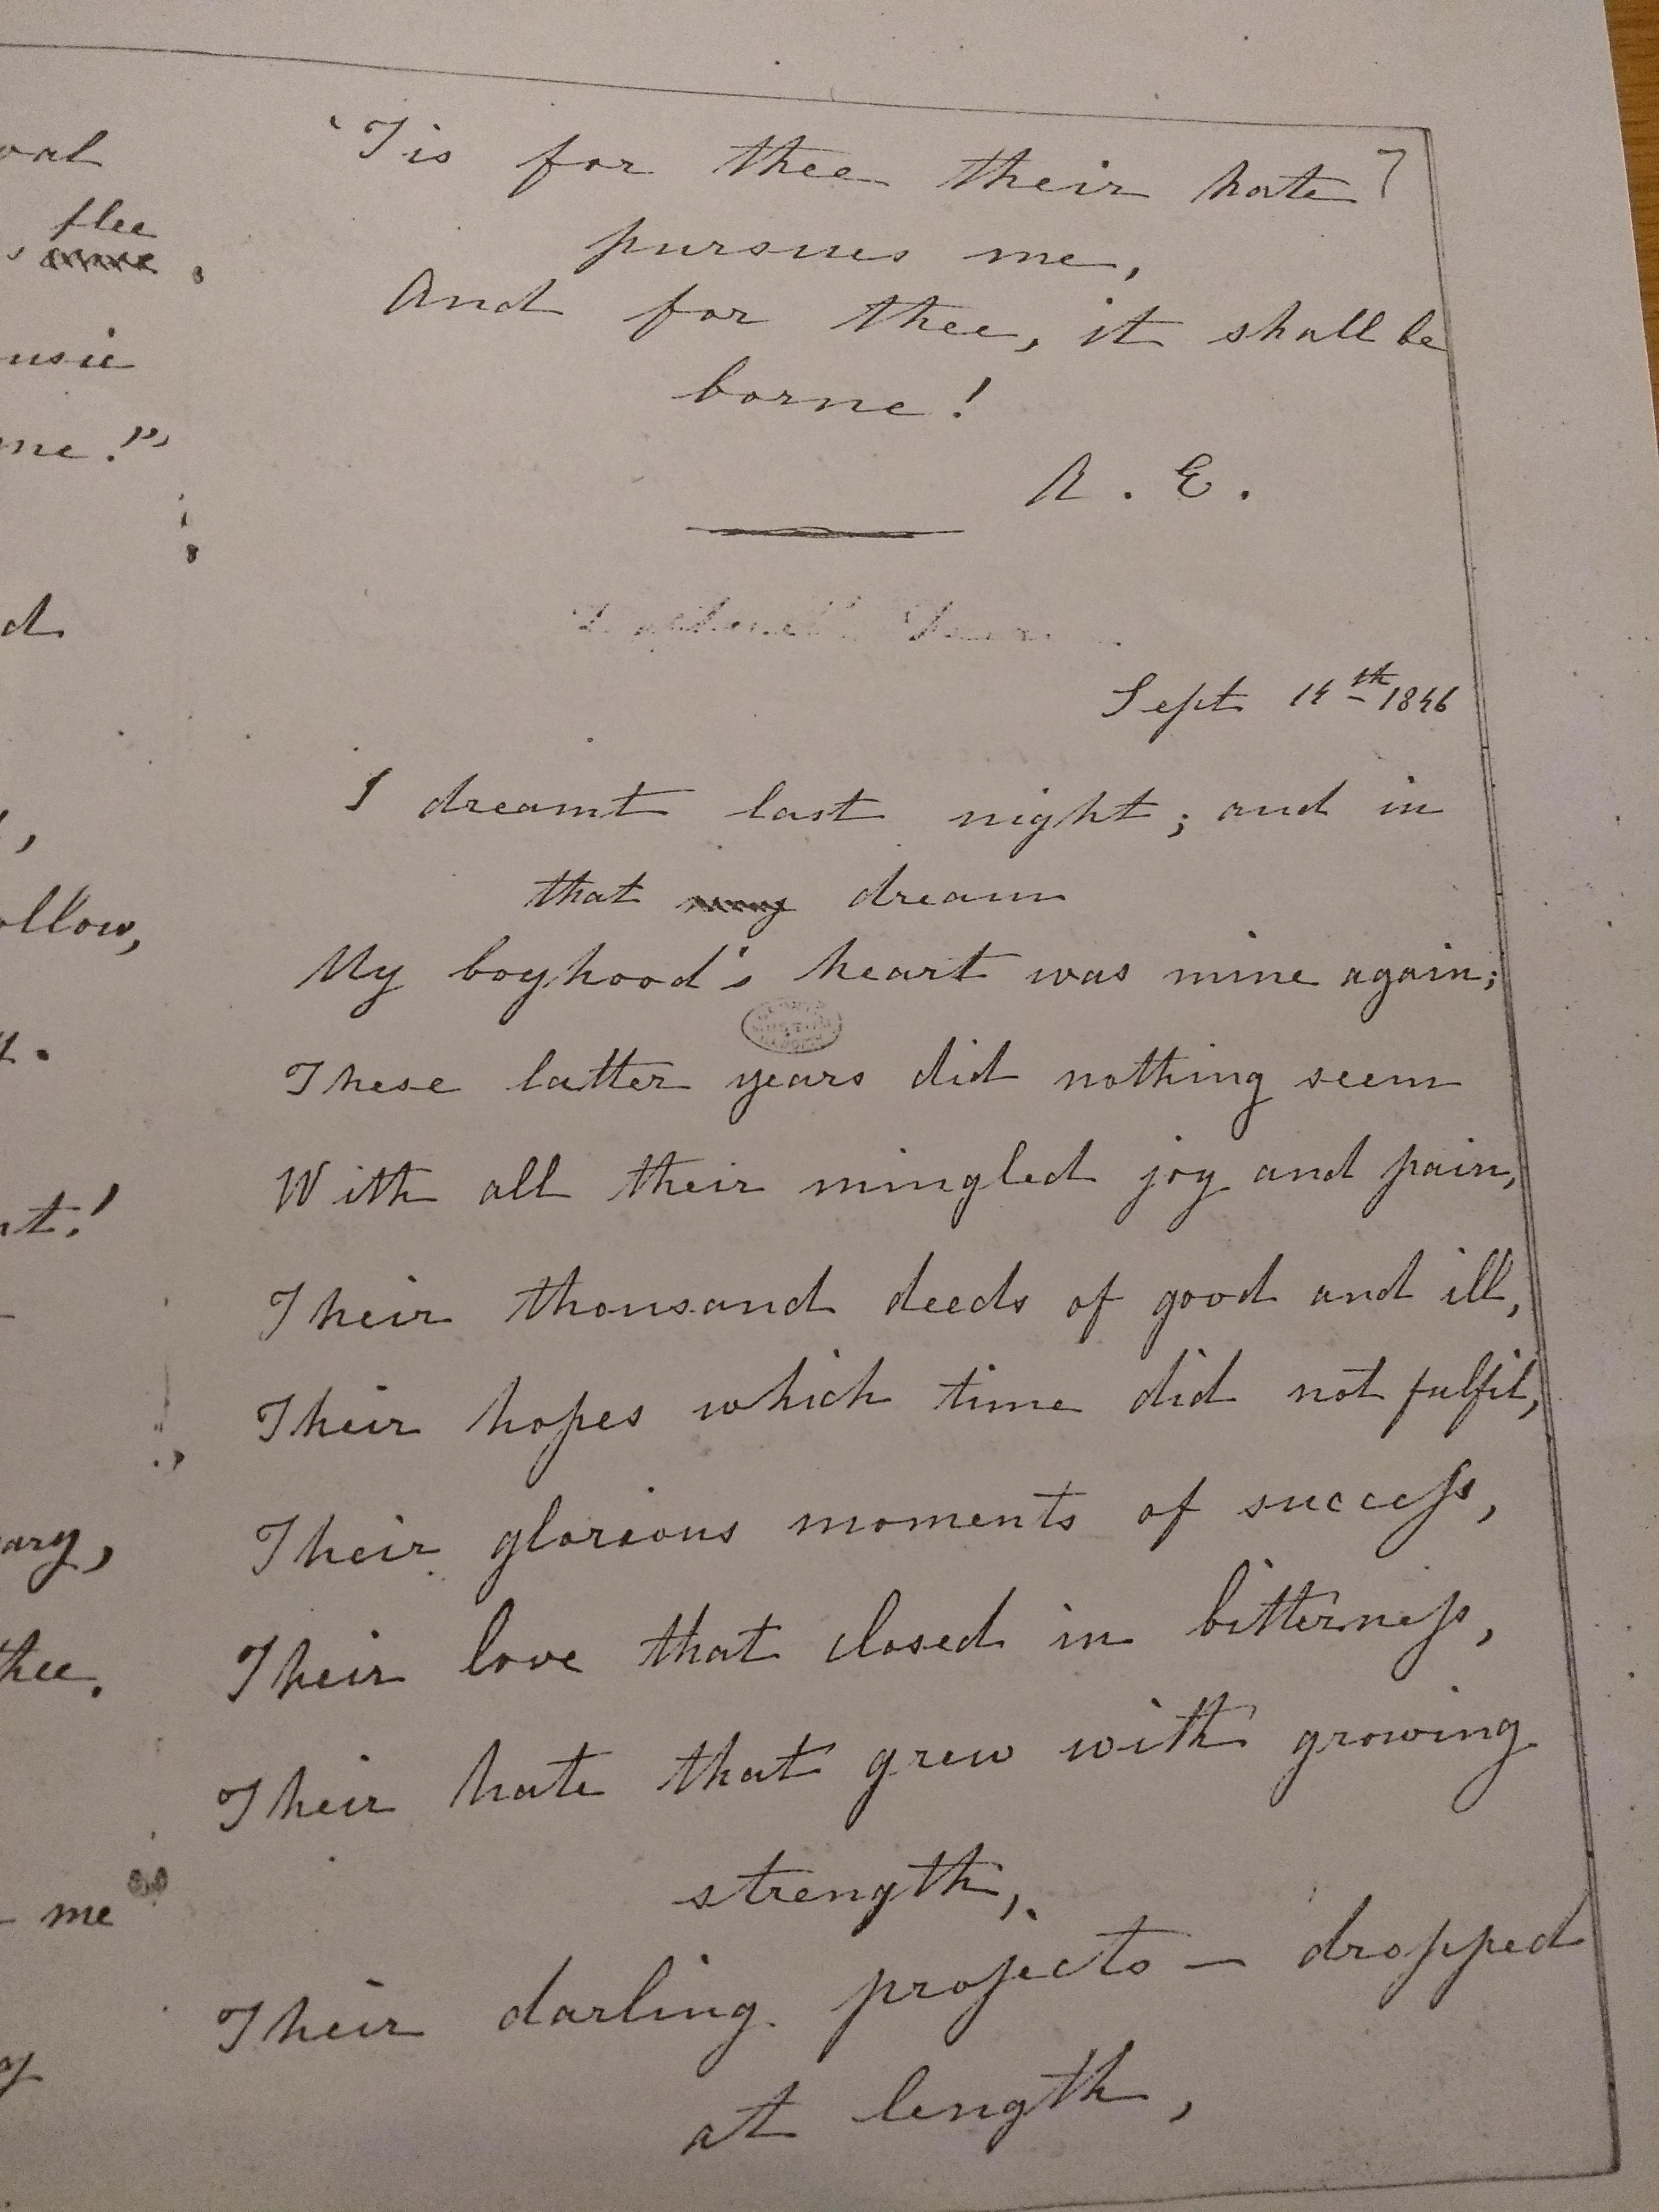 oal
flee
usic
me!"
d
,
ollow,
nt!
ary,
thee.
me
'Tis for thee their hate 7
pursues me,
And for thee, it shall be
borne!
A. E.
Sept 14th 1846
I dreamt last night; and in
that dream
My boyhood's heart was mine again;
These latter years did nothing seem
With all their mingled joy and pain,
Their thousand deeds of good and ill,
Their hopes which time did not fulfil,
Their glorious moments of success,
Their love that closed in bitterness,
Their hate that grew with growing
strength,
Their darling projects — dropped
at length,